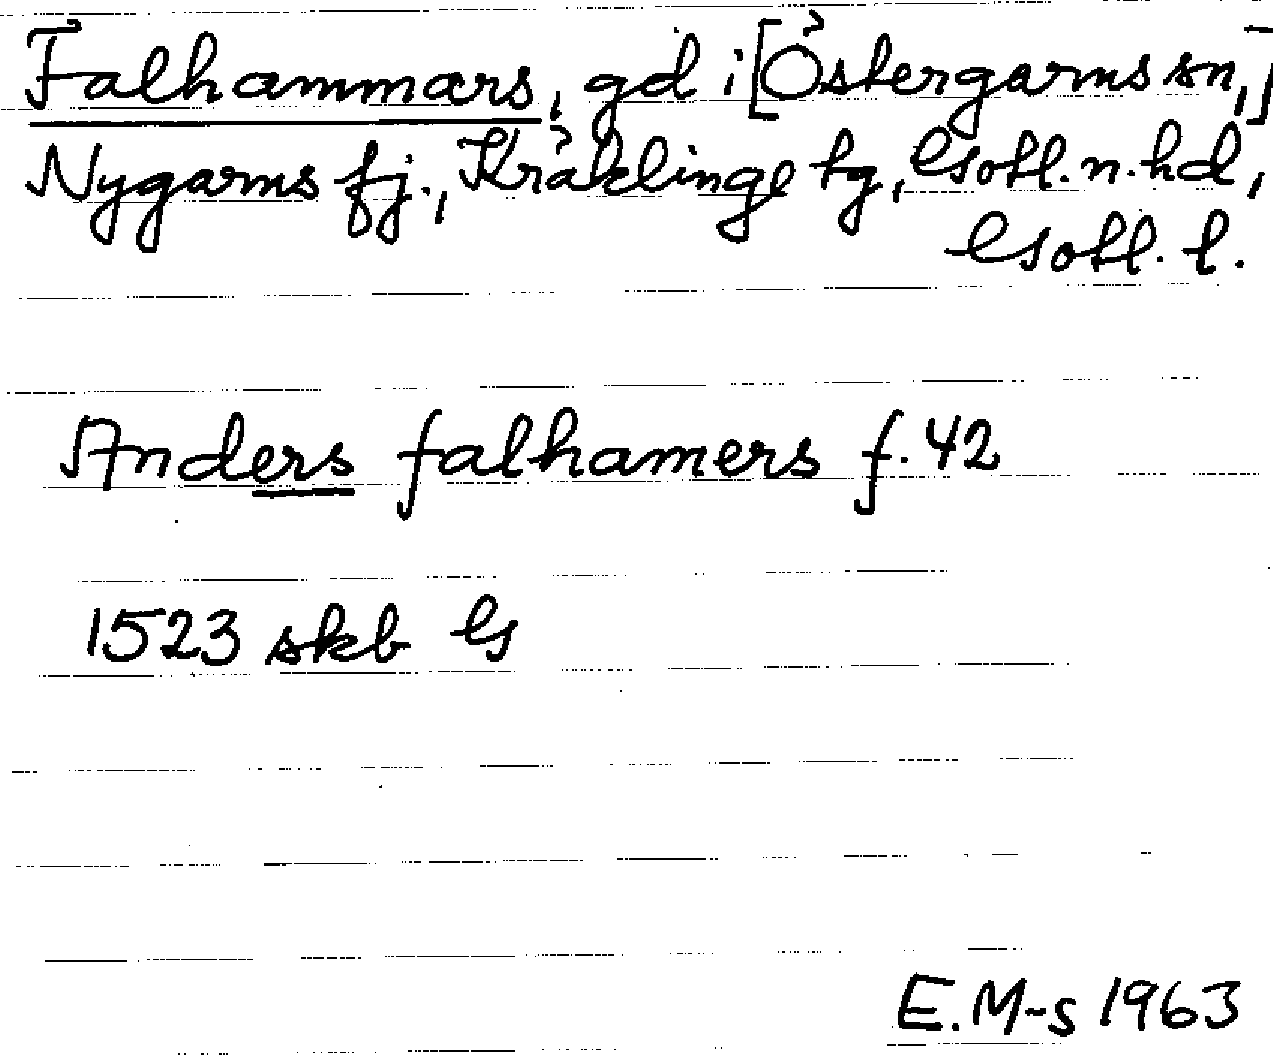 Falhammars, gd i [Östergarns sn,]
Nygarns fj., Kräklinge tg, Gotl. n. hd,
Gotl. l.
Anders falhamers f. 42
1523 skb G
E. M-s 1963